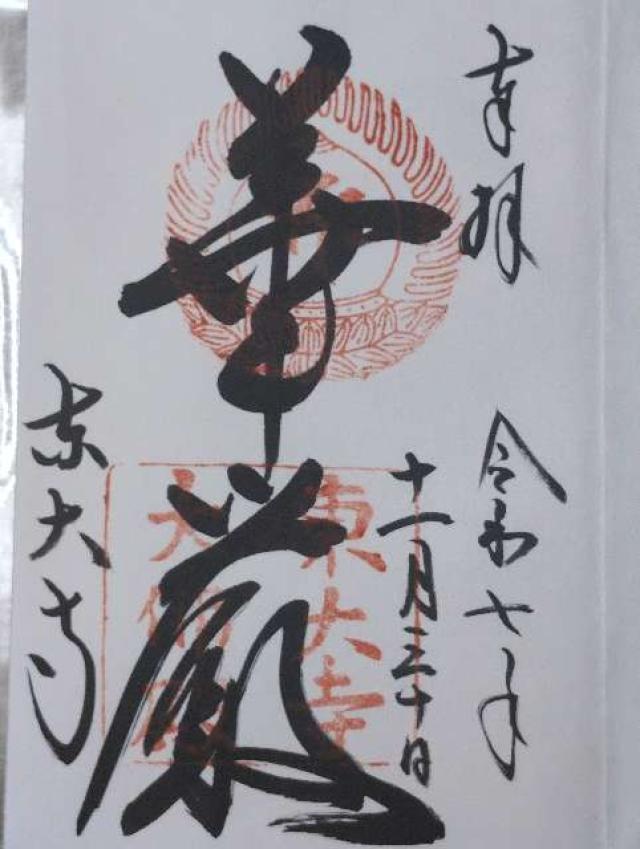 奉拝
令和七年
十一月三十日
華厳
東大寺
大仏殿
東大寺